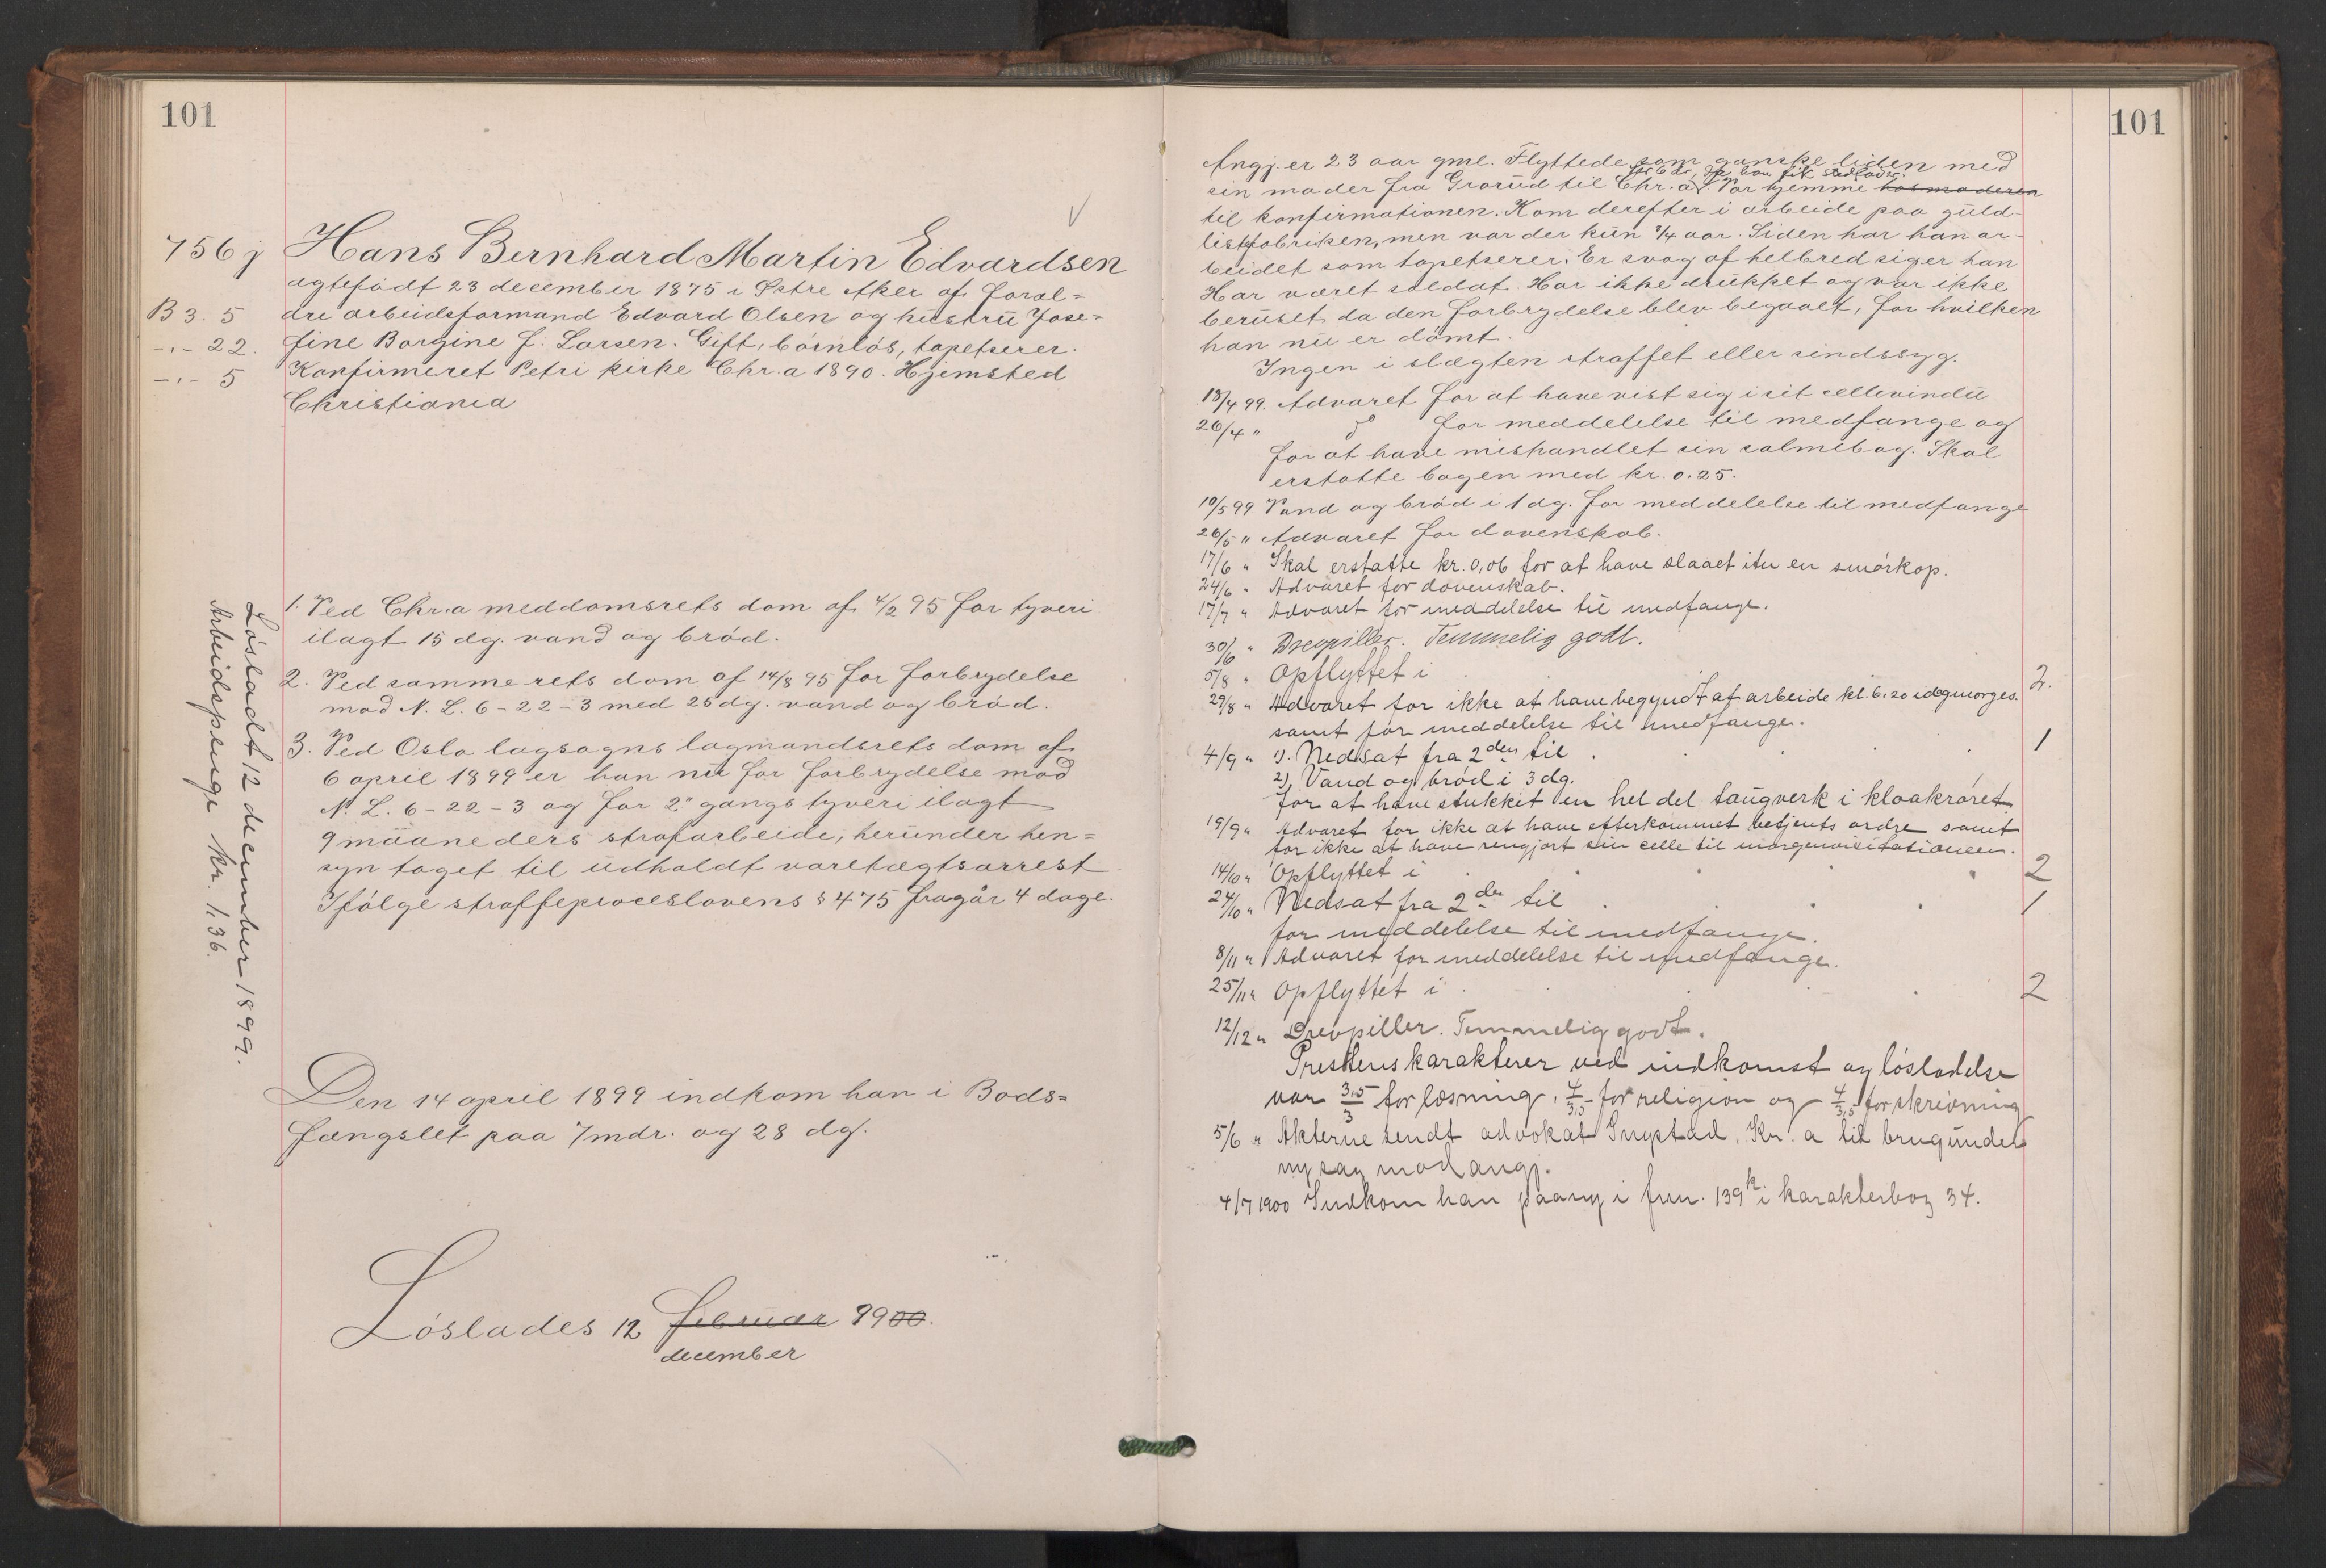 101
756 j Hans Bernhard Martin Edvardsen
ægtefödt 23 december 1875 i Østre Aker af foræl=
B 3. 5 dre arbeidsformand Edvard Olsen og hustru Jose=
-"- 22. fine Borgine f. Larsen. Gift, barnløs, tapetserer.
-"- 5 Konfirmeret Petri kirke Chr.a 1890. Hjemsted
Christiania
1. Ved Chr.a meddomsrets dom af 4/2 95 for tyveri
ilagt 15 dg. vand og bröd.
2. Ved samme rets dom af 14/8 95 for forbrydelse
mod N. L. 6-22-3 med 25 dg. vand og bröd.
3. Ved Oslo lagsogns lagmandsrets dom af
6 april 1899 er han nu for forbrydelse mod
N. L. 6-22-3 og for 2" gangs tyveri ilagt
9 maaneders strafarbeide, herunder hen=
syn taget til udholdt varetægtsarrest
Ifölge straffeproceslovens § 475 fragår 4 dage.
Lösladt 12 december 1899.
Arbeidspenge kr. 1,36.
Den 14 april 1899 indkom han i Bods=
fængslet paa 7 mdr. og 28 dg.
Löslades 12 februar 9900.
december
101
Angj. er 23 aar gml. Flyttede som ganske liden med
sin moder fra Grorud til Chr.a. Var hjemme hos moderen
til konfirmationen. Kom derefter i arbeide paa guld-
listefabriken, men var der kun 3/4 aar. Siden har han ar-
beidet som tapetserer. Er svag af helbred siger han
Har været soldat. Har ikke drukket og var ikke
beruset da den forbrydelse blev begaaet, for hvilken
han nu er dömt.
Ingen i slægten straffet eller sindssyg.
18/4 99. Advaret for at have vist sig i sit cellevindu
26/4 " do for meddelelse til medfange og
for at have mishandlet sin salmebog. Skal
erstatte bogen med kr. 0.25.
10/5 99 Vand og bröd i 1 dg. for meddelelse til medfange
26/5 " Advaret for dovenskab.
17/6 " Skal erstatte kr. 0,06 for at have slaaet itu en smörkop.
24/6 " Advaret for dovenskab.
17/7 " Advaret for meddelelse til medfange.
30/6 " Drevpiller. Temmelig godt.
5/8 " Opflyttet i 2.
29/8 " Advaret for ikke at have begyndt at arbeide kl. 6.20 idagmorges.
samt for meddelelse til medfange.
4/9 " 1). Nedsat fra 2den til 1
2), Vand og bröd i 3 dg.
for at have stukket en hel del taugverk i kloakröret
19/9 " Advaret for ikke at have efterkommet betjents ordre samt
for ikke at have rengjort sin celle til morgenvisitationen.
14/10 " Opflyttet i 2
24/10 " Nedsat fra 2den til 1
for meddelelse til medfange.
8/11 " Advaret for meddelelse til medfange.
25/11 " Opflyttet i 2
12/12 " Drevpiller. Temmelig godt.
Prestens karakterer ved indkomst og lösladelse
var 3,5/3 for læsning, 4/3,5 for religion og 4/3,5 for skrivning
5/6 " Akterne sendt advokat Kr.a til brug under
ny sag mod angj.
4/7 1900 Indkom han paany i fnr. 139k i karakterbog 34.